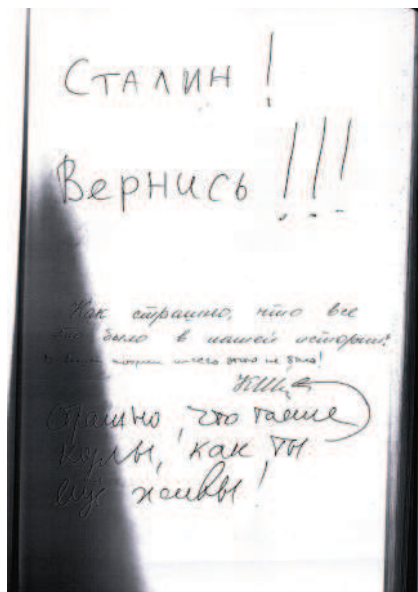 Сталин!
Вернись!!!
Как страшно, что все
это было в нашей истории!
ничего этого не было!
Страшно, что такие
как ты
ещё живы!